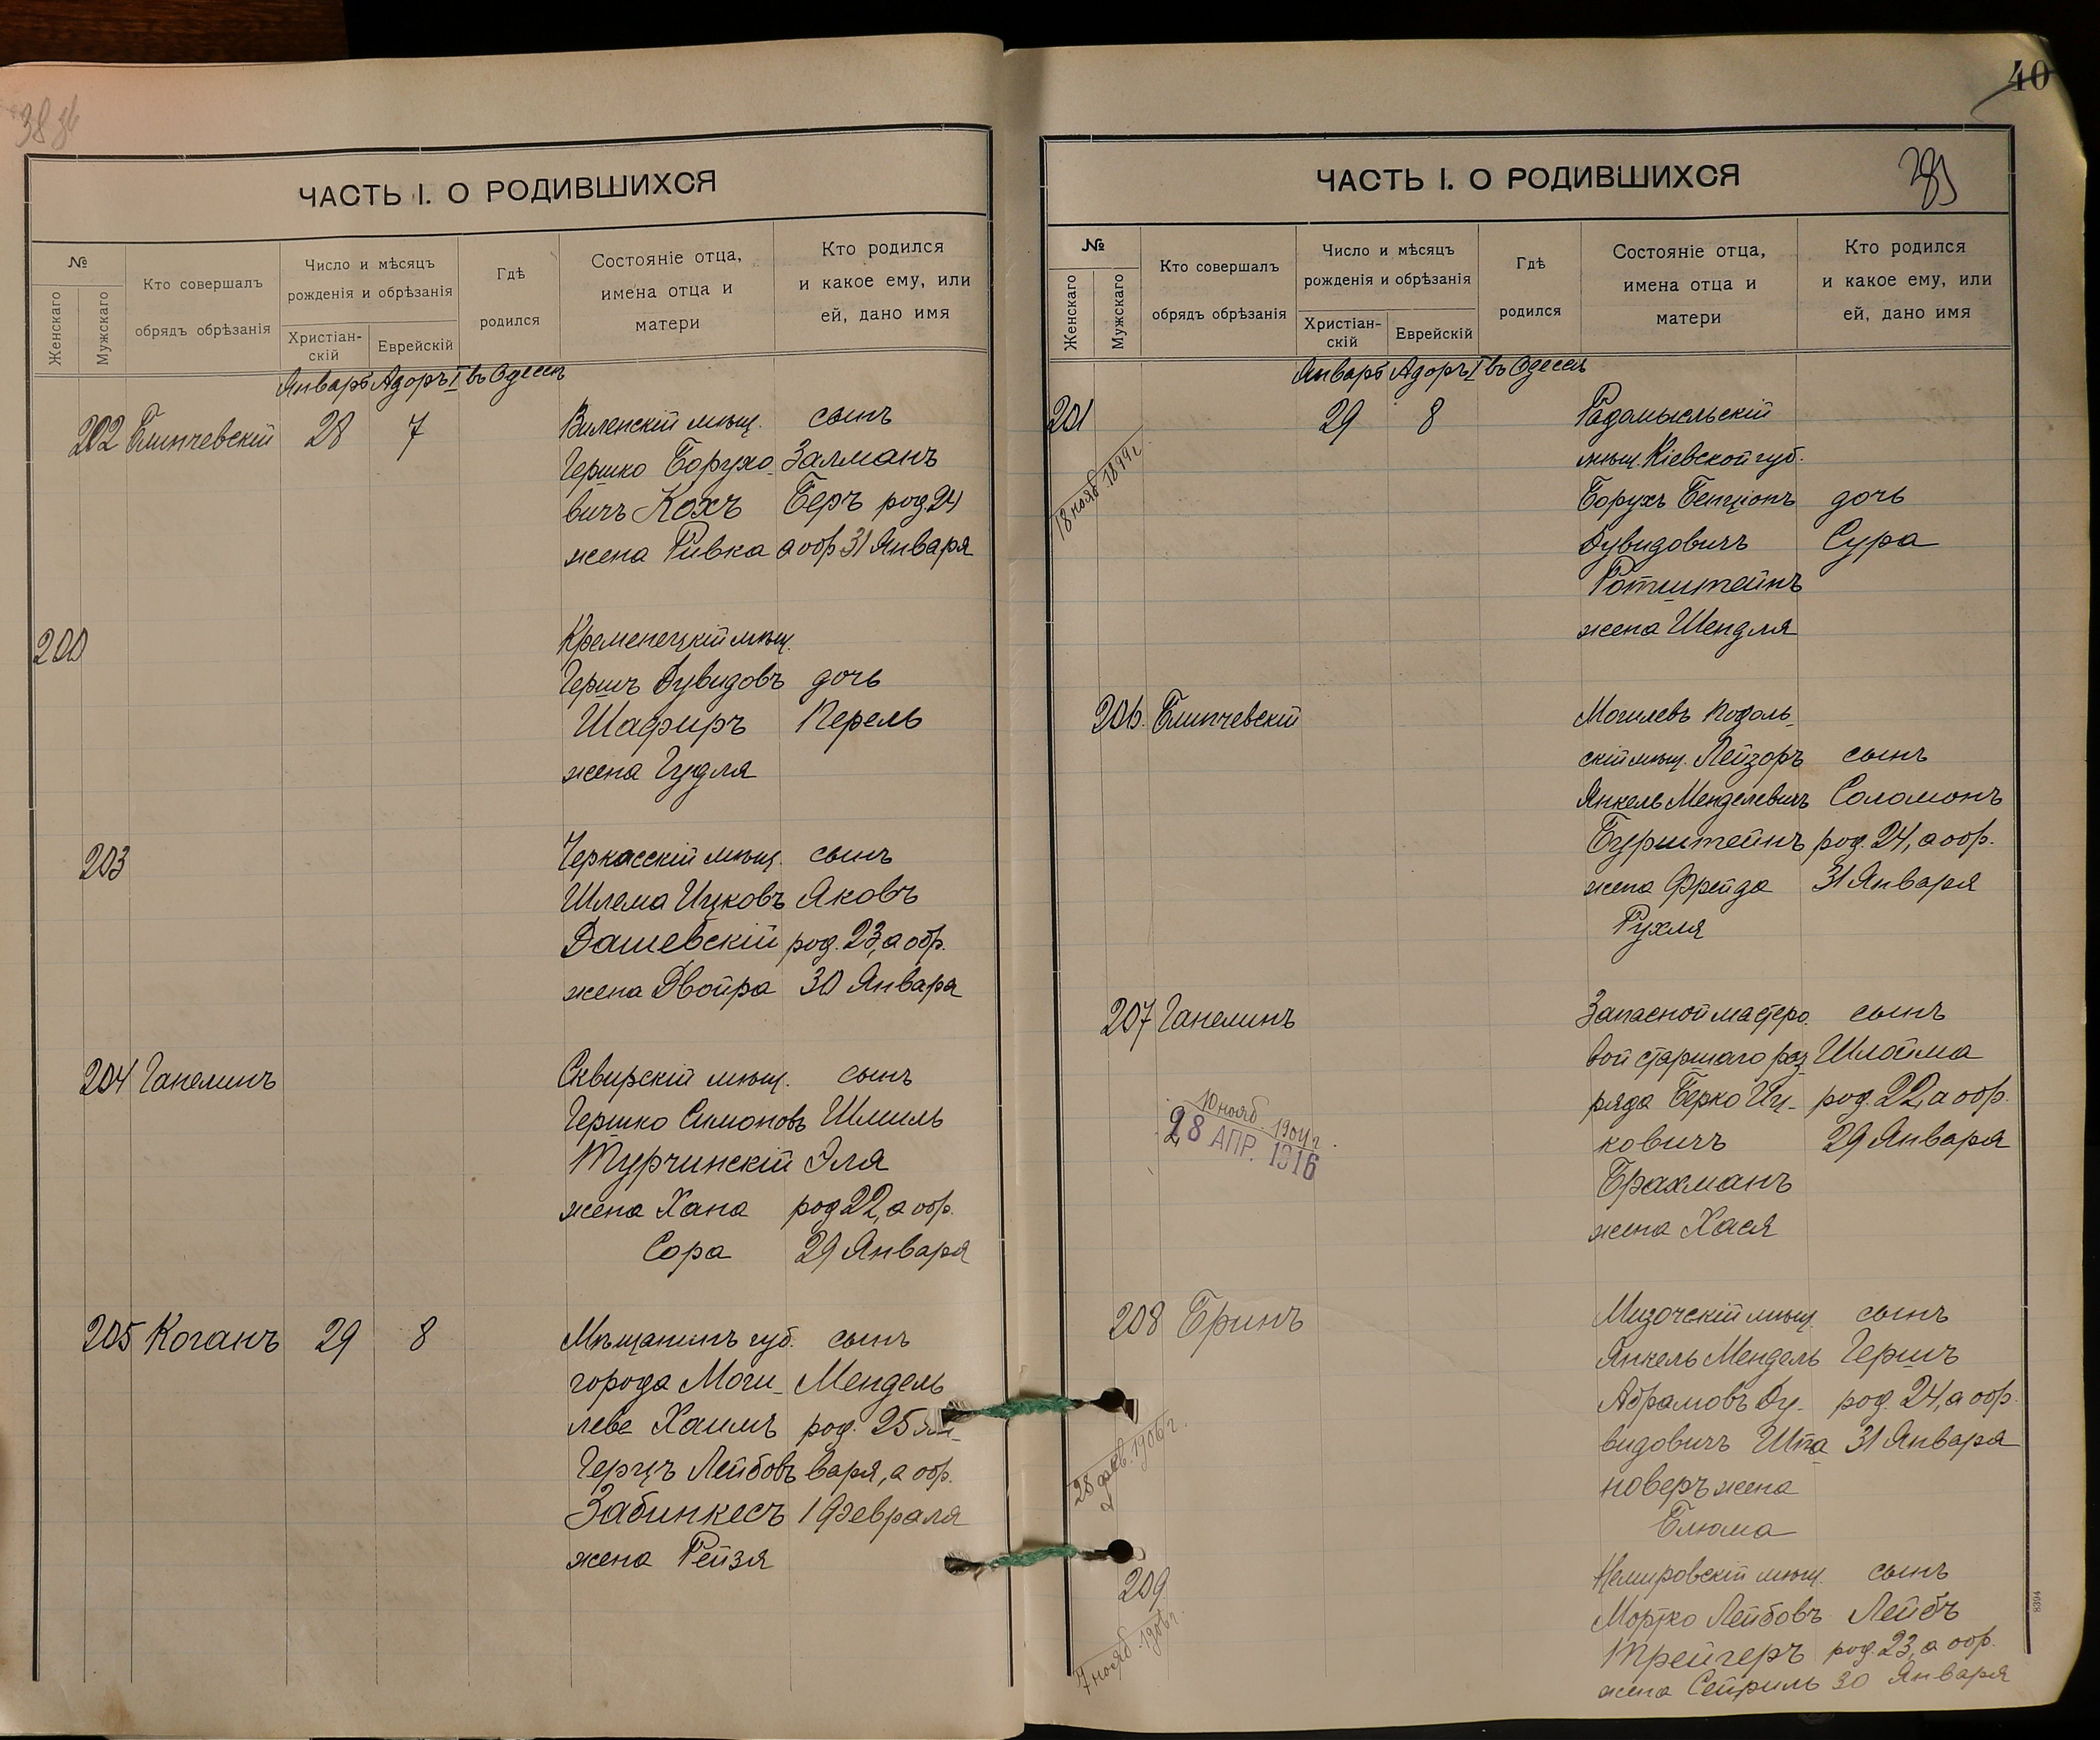 ЧАСТЬ I. О РОДИВШИХСЯ
№
Женскаго
Мужскаго
Кто совершалъ
обрядъ обрѣзанія
Число и мѣсяцъ
рожденія и обрѣзанія
Христіан-
скій
Еврейскій
Гдѣ
родился
Состояніе отца,
имена отца и
матери
Кто родился
и какое ему, или
ей, дано имя
Январь Адоръ I въ Одессѣ
202 Блинчевскій 28 7 Виленскій мѣщ. сынъ
Гершко Борухо- Залманъ
вичъ Кохъ Беръ род. 24
жена Ривка а обр 31 Января
200 Кременецкій мѣщ.
Гершъ Дувидовъ дочь
Шафиръ Перель
жена Гудля
203 Черкасскій мѣщ. сынъ
Шлема Ицковъ Яковъ
Дашевскій род. 23, а обр.
жена Двойра 30 Января
204 Ганелинъ Сквирскій мѣщ. сынъ
Гершко Симоновъ Шмиль
Турчинскій Эля
жена Хана род 22, а обр.
Сора 29 Января
205 Коганъ 29 8 Мѣщанинъ губ. сынъ
города Моги- Мендель
лева Хаимъ род. 25 Ян-
Герцъ Лейбовъ варя, а обр.
Забинкесъ 1 Февраля
жена Рейзя
40
ЧАСТЬ I. О РОДИВШИХСЯ
№
Женскаго
Мужскаго
Кто совершалъ
обрядъ обрѣзанія
Число и мѣсяцъ
рожденія и обрѣзанія
Христіан-
скій
Еврейскій
Гдѣ
родился
Состояніе отца,
имена отца и
матери
Кто родился
и какое ему, или
ей, дано имя
Январь Адоръ I въ Одессѣ
201 29 8 Радомысльскій
мѣщ. Кіевской губ.
Борухъ Бенціонъ дочь
Дувидовичъ Сура
Ротштейнъ
жена Шендля
206. Блинчевскій Могилевъ Подоль-
скій мѣщ. Лейзоръ сынъ
Янкель Менделевичъ Соломонъ
Бурштейнъ род. 24, а обр.
жена Фрейда 31 Января
Рухля
207 Ганелинъ Запасной мастеро- сынъ
вой старшаго раз- Шлойма
ряда Берко Иц- род. 22, а обр.
ковичъ 29 Января
Брахманъ
жена Хася
10 нояб. 1904 г.
28 АПР. 1916
208 Бринъ Мизочскій мѣщ. сынъ
Янкель Мендель Гершъ
Абрамовъ Ду- род. 24, а обр.
видовичъ Шпа- 31 Января
новеръ жена
Блюма
209 Немировскій мѣщ. сынъ
Мортко Лейбовъ Лейбъ
Трейгеръ род. 23, а обр.
жена Сейриль 30 Января
7 нояб. 1906 г.
8394